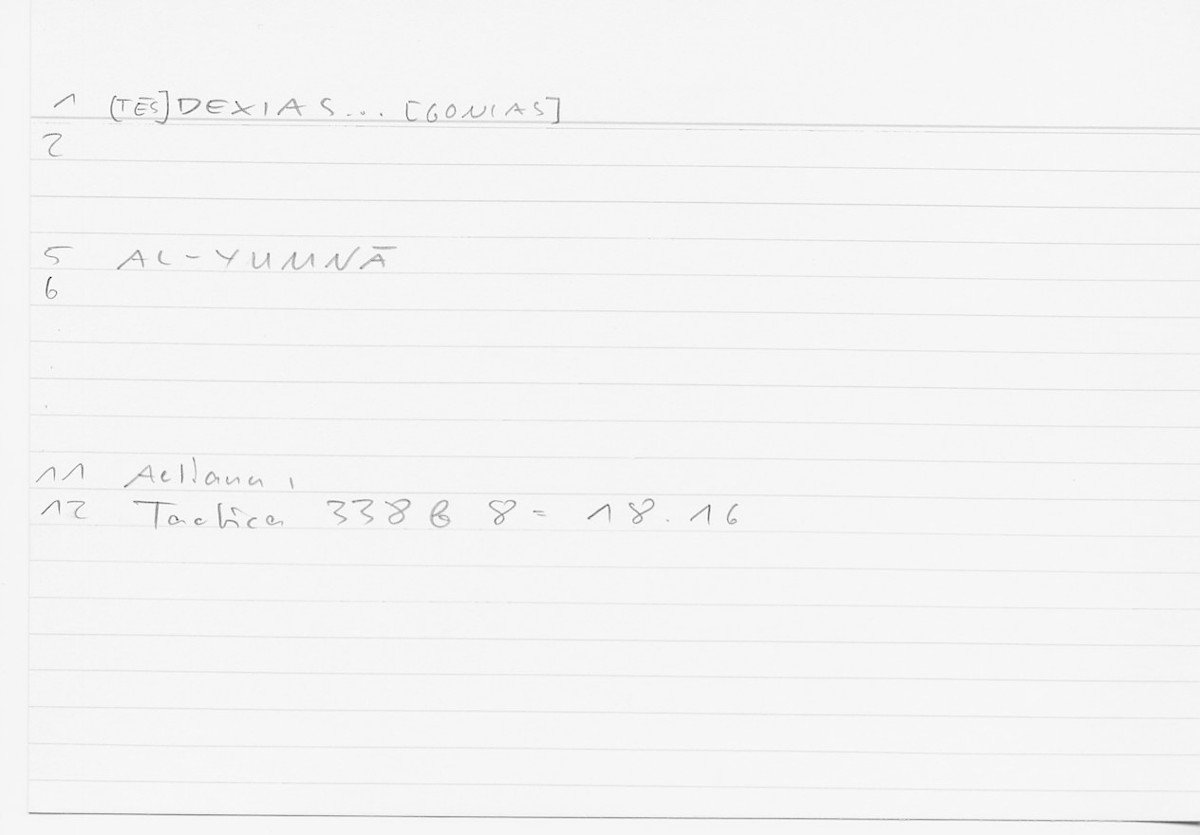 1 [TĒS] DEXIAS... [GONIAS]
2
5 AL-YUMNĀ
6
.
.
.
11 Aelianus,
12 Tactica 338 B 8 = 18.16